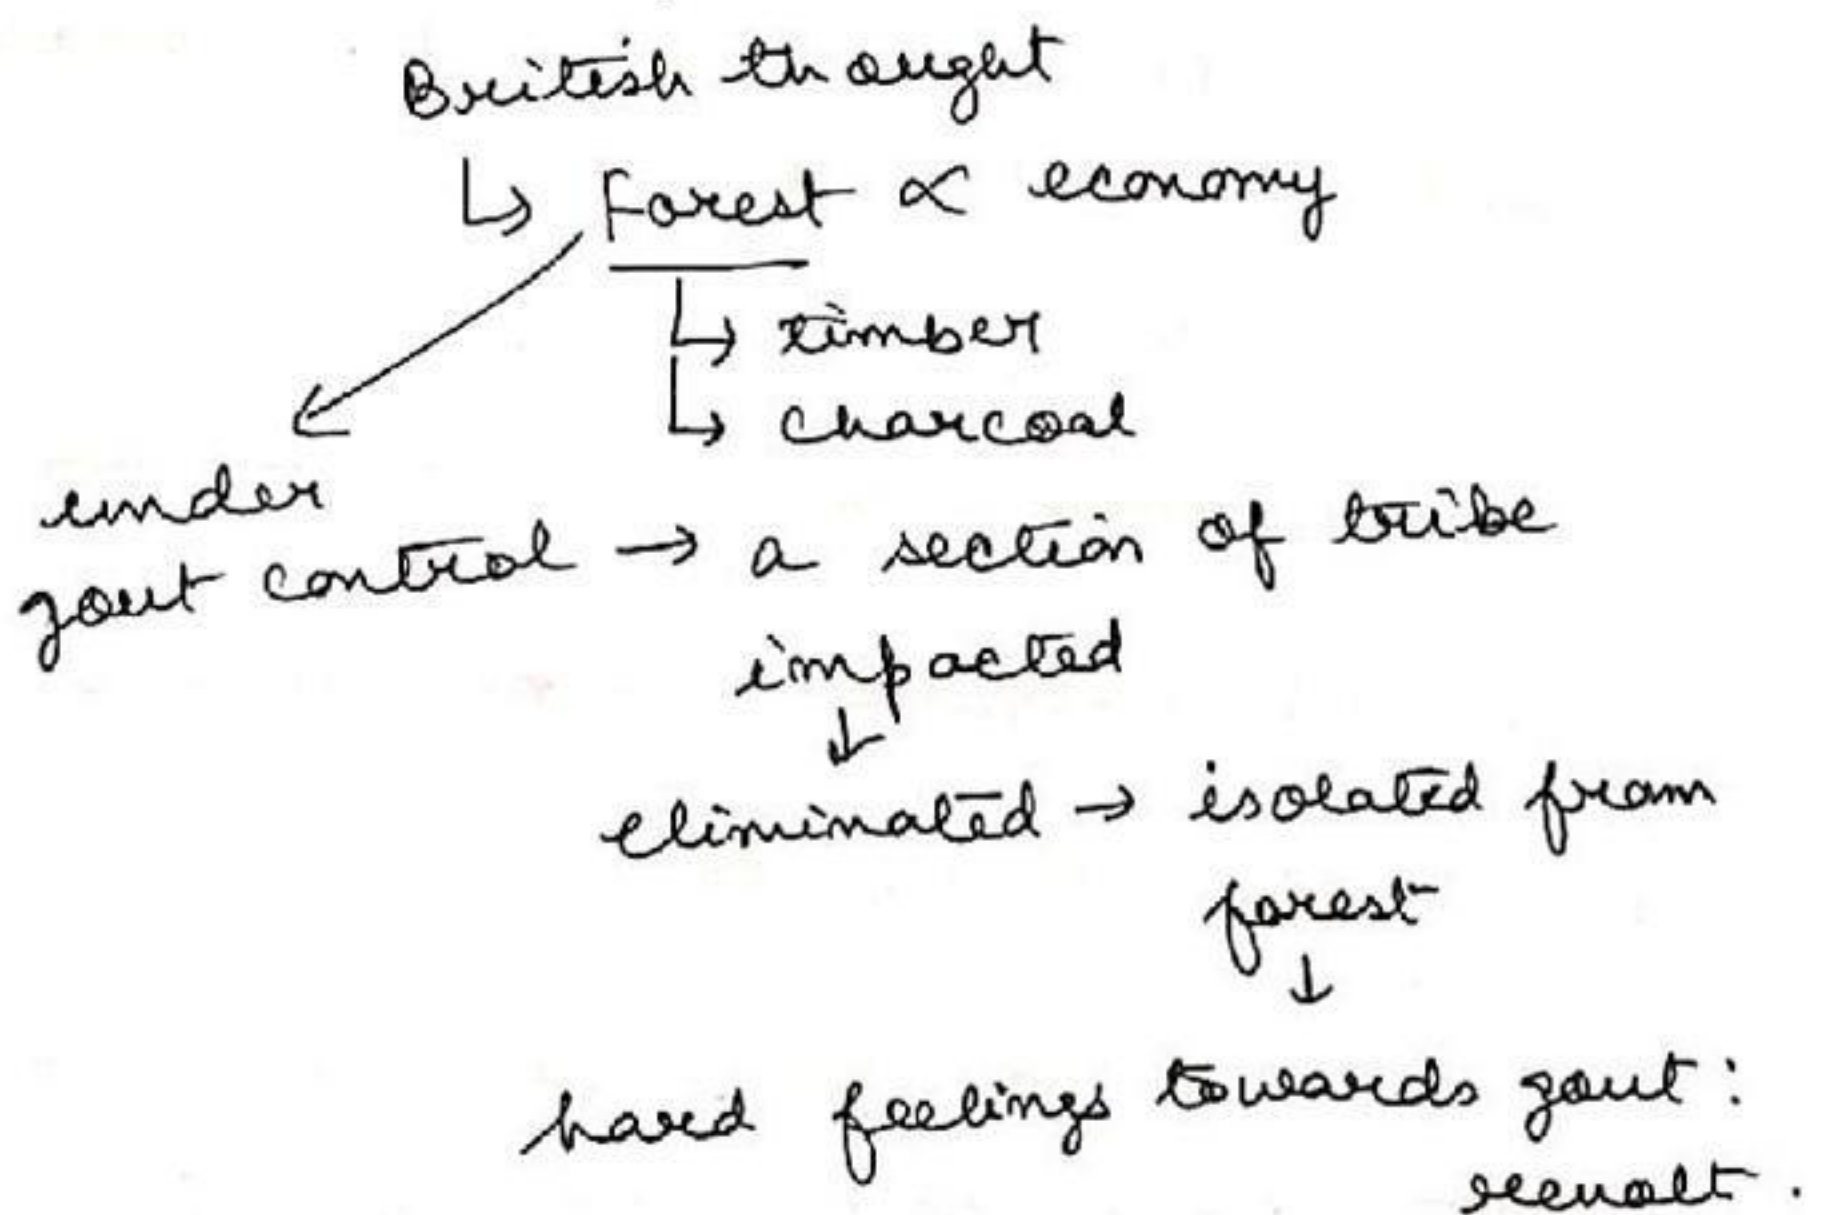 British thought
↳ Forest ∝ economy
↳ timber
↳ charcoal
under
govt control → a section of tribe
impacted
↓
eliminated → isolated from
forest
↓
hard feelings towards govt:
revolt.